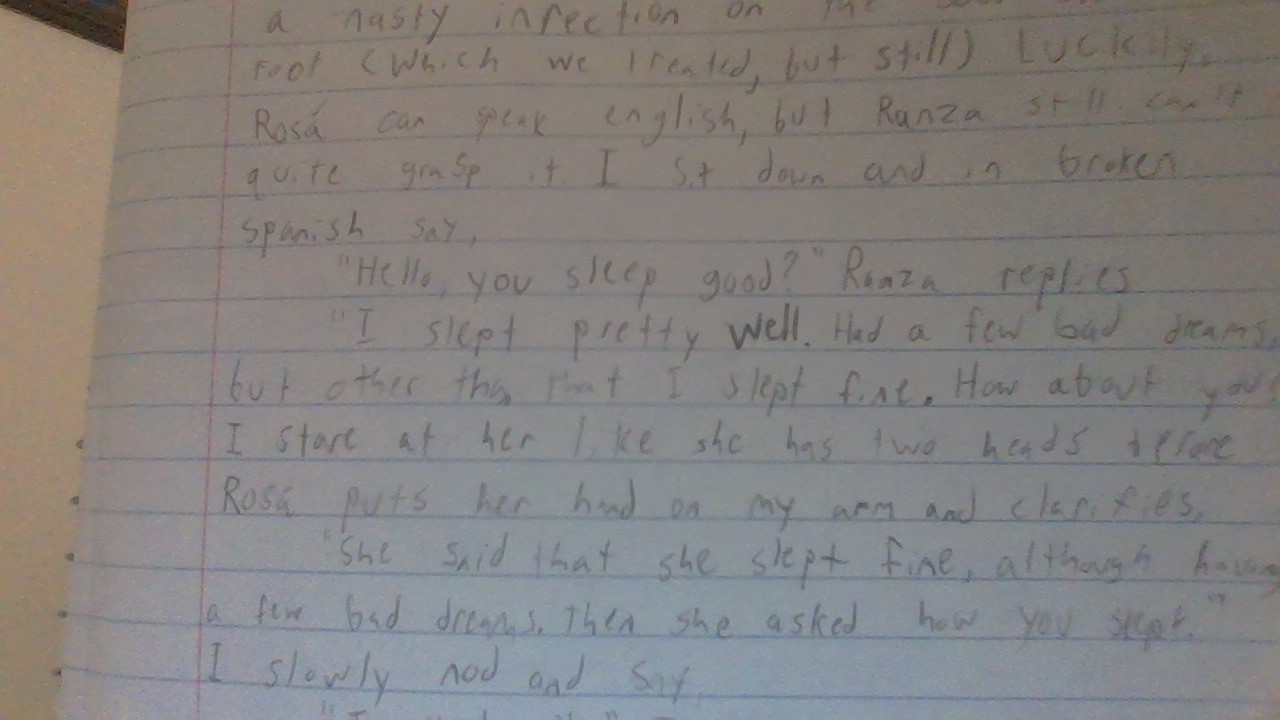 a nasty infection on the
foot (which we treated, but still) Luckily,
Rosá can speak english, but Ranza still can't
quite grasp it I sit down and in broken
spanish say,
"Hello, you sleep good?" Ranza replies
"I slept pretty well. Had a few bad dreams,
but other than that I slept fine. How about you?
I stare at her like she has two heads before
Rosá puts her hand on my arm and clarifies,
"She said that she slept fine, although having
a few bad dreams. Then she asked how you slept."
I slowly nod and say,
"I